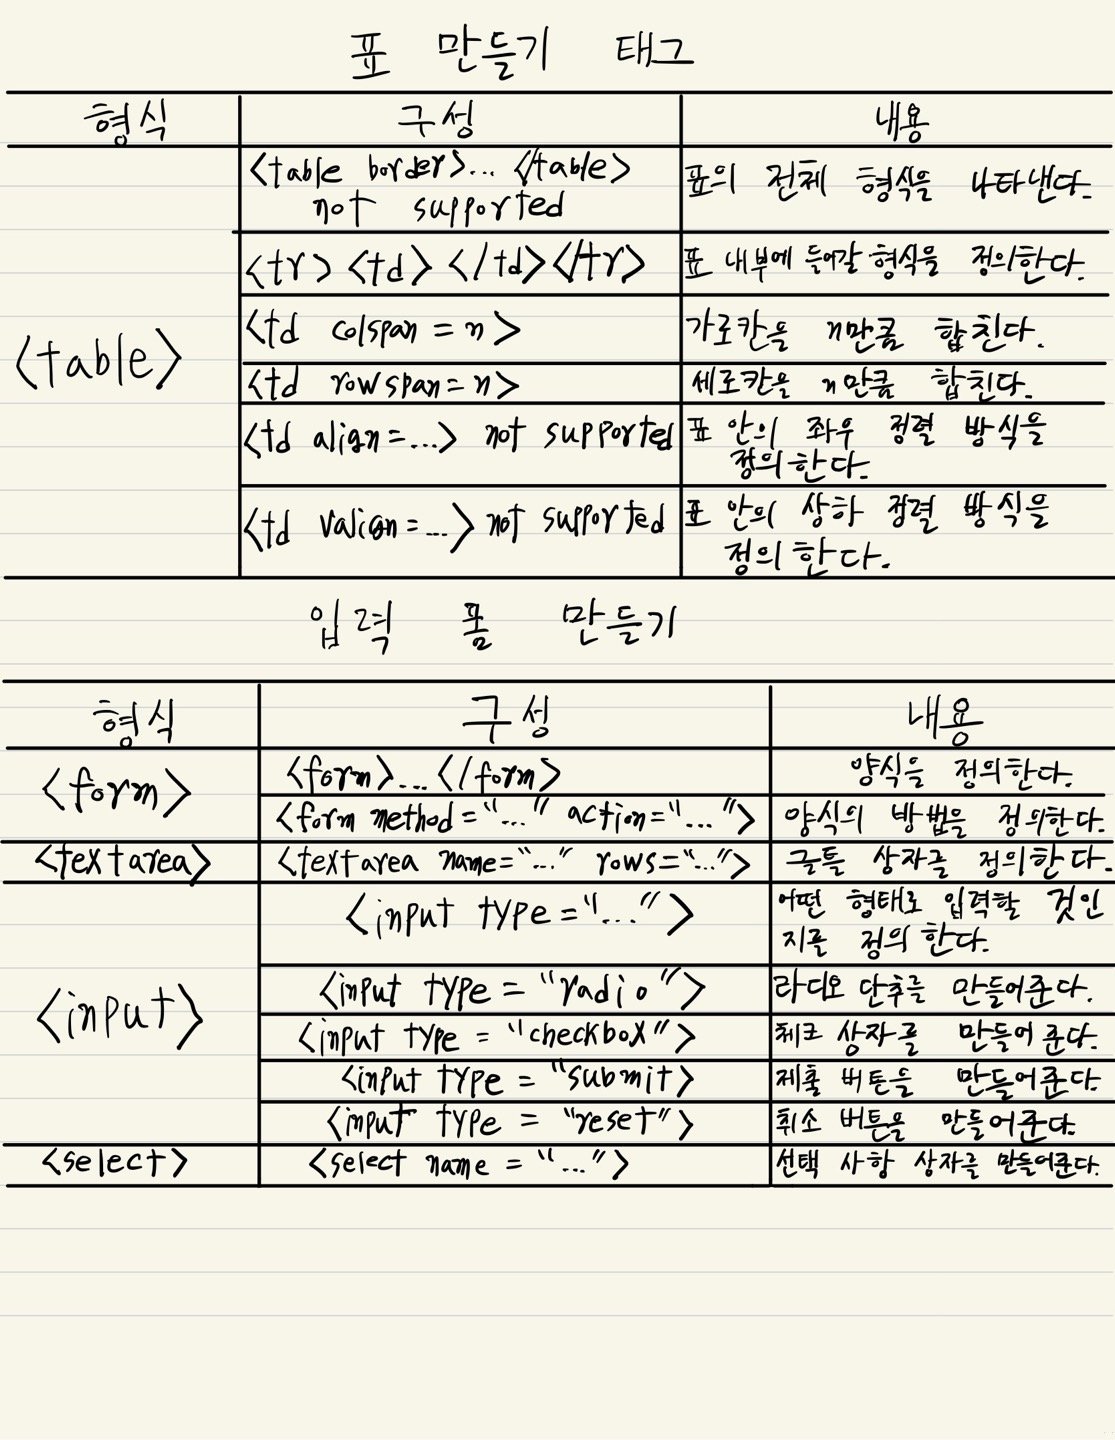 표 만들기 태그
형식 구성 내용
<table border>... </table> 표의 전체 형식을 나타낸다.
not supported
<tr> <td> </td></tr> 표 내부에 들어갈 형식을 정의한다.
<table>
<td colspan = n> 가로칸을 n만큼 합친다.
<td rowspan = n> 세로칸을 n만큼 합친다.
<td align=...> not supported 표 안의 좌우 정렬 방식을
정의한다.
<td valign=...> not supported 표 안의 상하 정렬 방식을
정의한다.
입력 폼 만들기
형식 구성 내용
<form>
<form>...</form> 양식을 정의한다.
<form method="..." action="..."> 양식의 방법을 정의한다.
<textarea> <textarea name="..." rows="..."> 글틀 상자를 정의한다.
<input type="..."> 어떤 형태로 입력할 것인
지를 정의한다.
<input>
<input type = "radio"> 라디오 단추를 만들어준다.
<input type = "checkbox"> 체크 상자를 만들어준다.
<input type = "submit> 제출 버튼을 만들어준다.
<input type = "reset"> 취소 버튼을 만들어준다.
<select> <select name = "..."> 선택 사항 상자를 만들어준다.